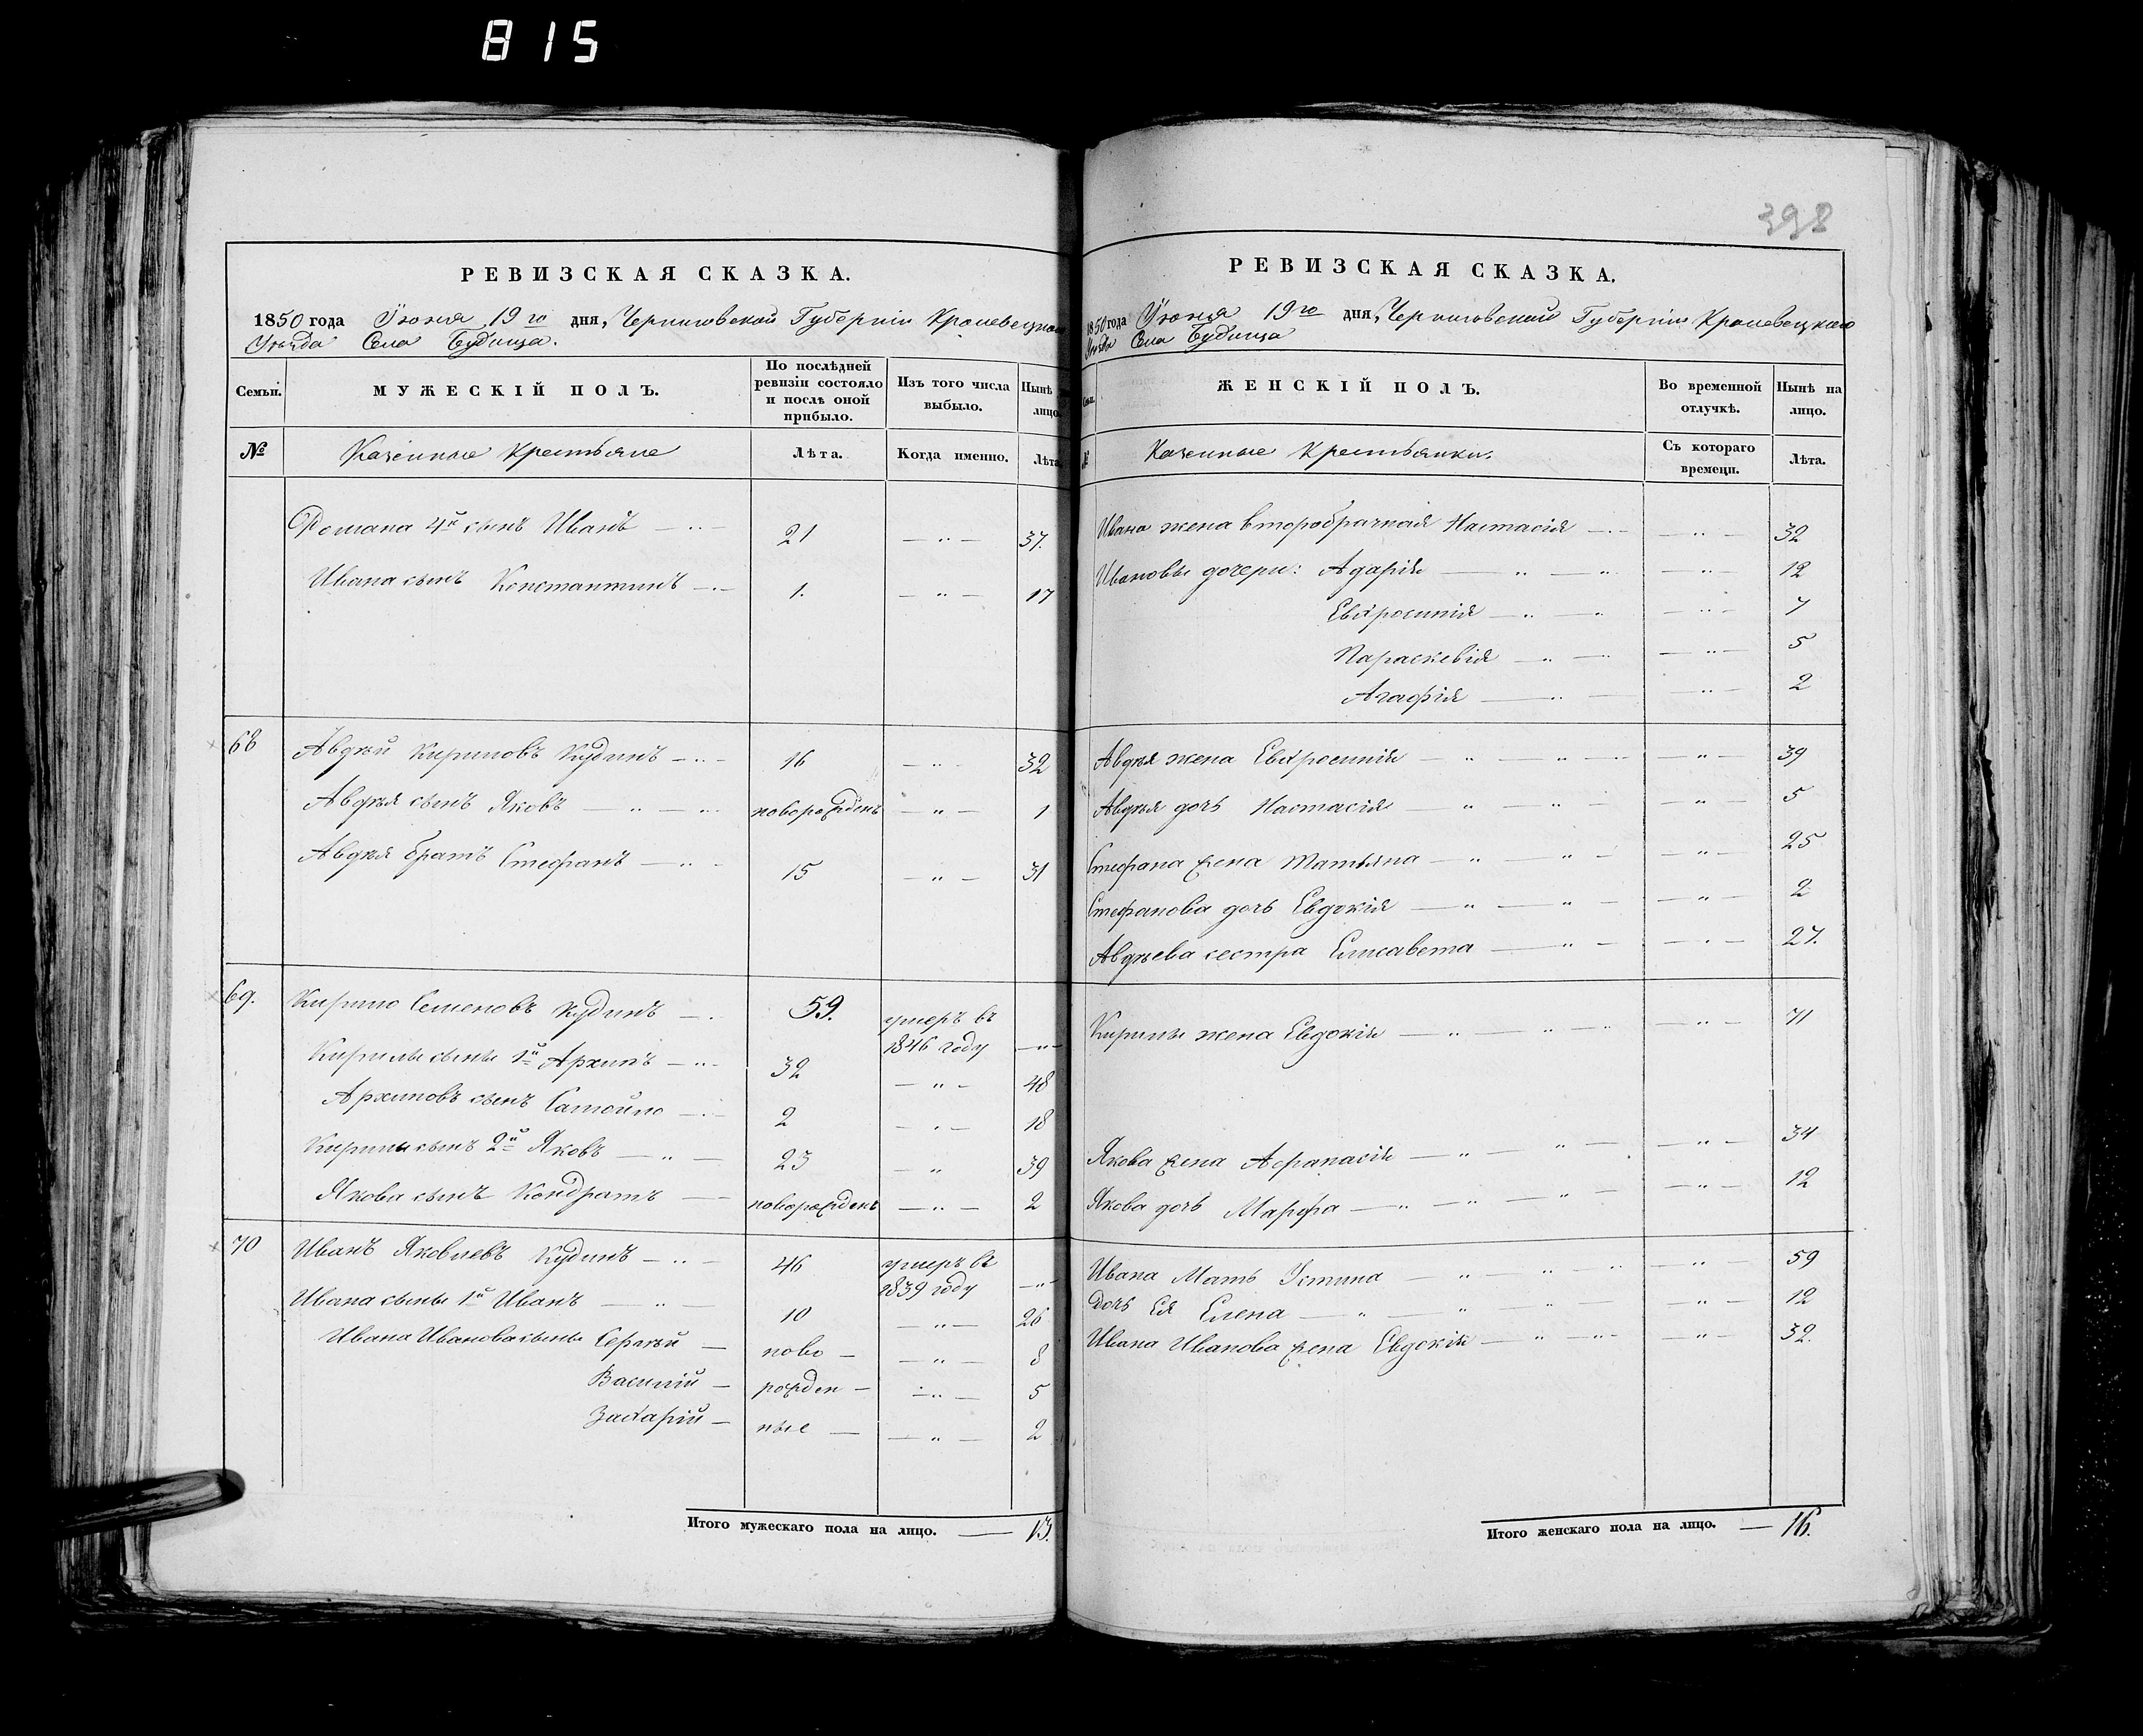 815
398
РЕВИЗСКАЯ СКАЗКА.
1850 года Іюня 19го дня, Черниговской Губерніи Кролевецкаго
Уѣзда Села Будища.
Семьи. МУЖЕСКІЙ ПОЛЪ. По послѣдней ревизіи состояло и послѣ оной прибыло. Изъ того числа выбыло. Нынѣ лицо
№ Казенные Крестьяне Лѣта. Когда именно. Лѣта
Романа 4й сынъ Иванъ 21 — „ — 37.
Ивана сынъ Константинъ 1. — „ — 17
68 Авдѣй Кириловъ Кудинъ 16 — „ — 32
Авдѣя сынъ Яковъ новорожденъ — „ — 1
Авдѣя братъ Стефанъ 15 — „ — 31
69. Кирило Семеновъ Кудинъ 59. умеръ въ
1846 году — „ —
Кирилы сыны 1й Архипъ 32 — „ — 48
Архиповъ сынъ Самойло 2 — „ — 18
Кирилы сынъ 2й Яковъ 23 — „ 39
Якова сынъ Кондратъ новорожденъ — „ — 2
70 Иванъ Яковлевъ Кудинъ 46 умеръ въ
1839 году — „ —
Ивана сыны 1й Иванъ 10 — „ — 26
Ивана Иванова сыны Сергѣй ново — „ — 8
Василій рожден — „ — 5
Захарій ные — „ — 2
Итого мужескаго пола на лицо. — 13.
РЕВИЗСКАЯ СКАЗКА.
1850 года Іюня 19го дня, Черниговской Губерніи Кролевецкаго
Уѣзда Села Будища
Семьи. ЖЕНСКІЙ ПОЛЪ. Во временной отлучкѣ. Нынѣ на лицо.
№ Казенные Крестьянки. Съ котораго времени. Лѣта.
Ивана жена второбрачная Настасія — „ — 32
Ивановы дочери: Адарія — „ — 12
Евхросинія — „ — 7
Параскевія — „ — 5
Агафія „ — 2
Авдѣя жена Евхросинія — „ — 39
Авдѣя дочь Настасія — „ — 5
Стефана жена Татьяна — „ — 25
Стефанова дочь Евдокія — „ — 2
Авдѣева сестра Елисавета — „ — 27.
Кирилы жена Евдокія — „ — 71
Якова жена Афанасія — „ — 34
Якова дочь Марфа — „ — 12
Ивана Мать Устина — „ — 59
Дочь Ея Елена — „ — 12
Ивана Иванова жена Евдокія — „ — 32.
Итого женскаго пола на лицо. — 16.